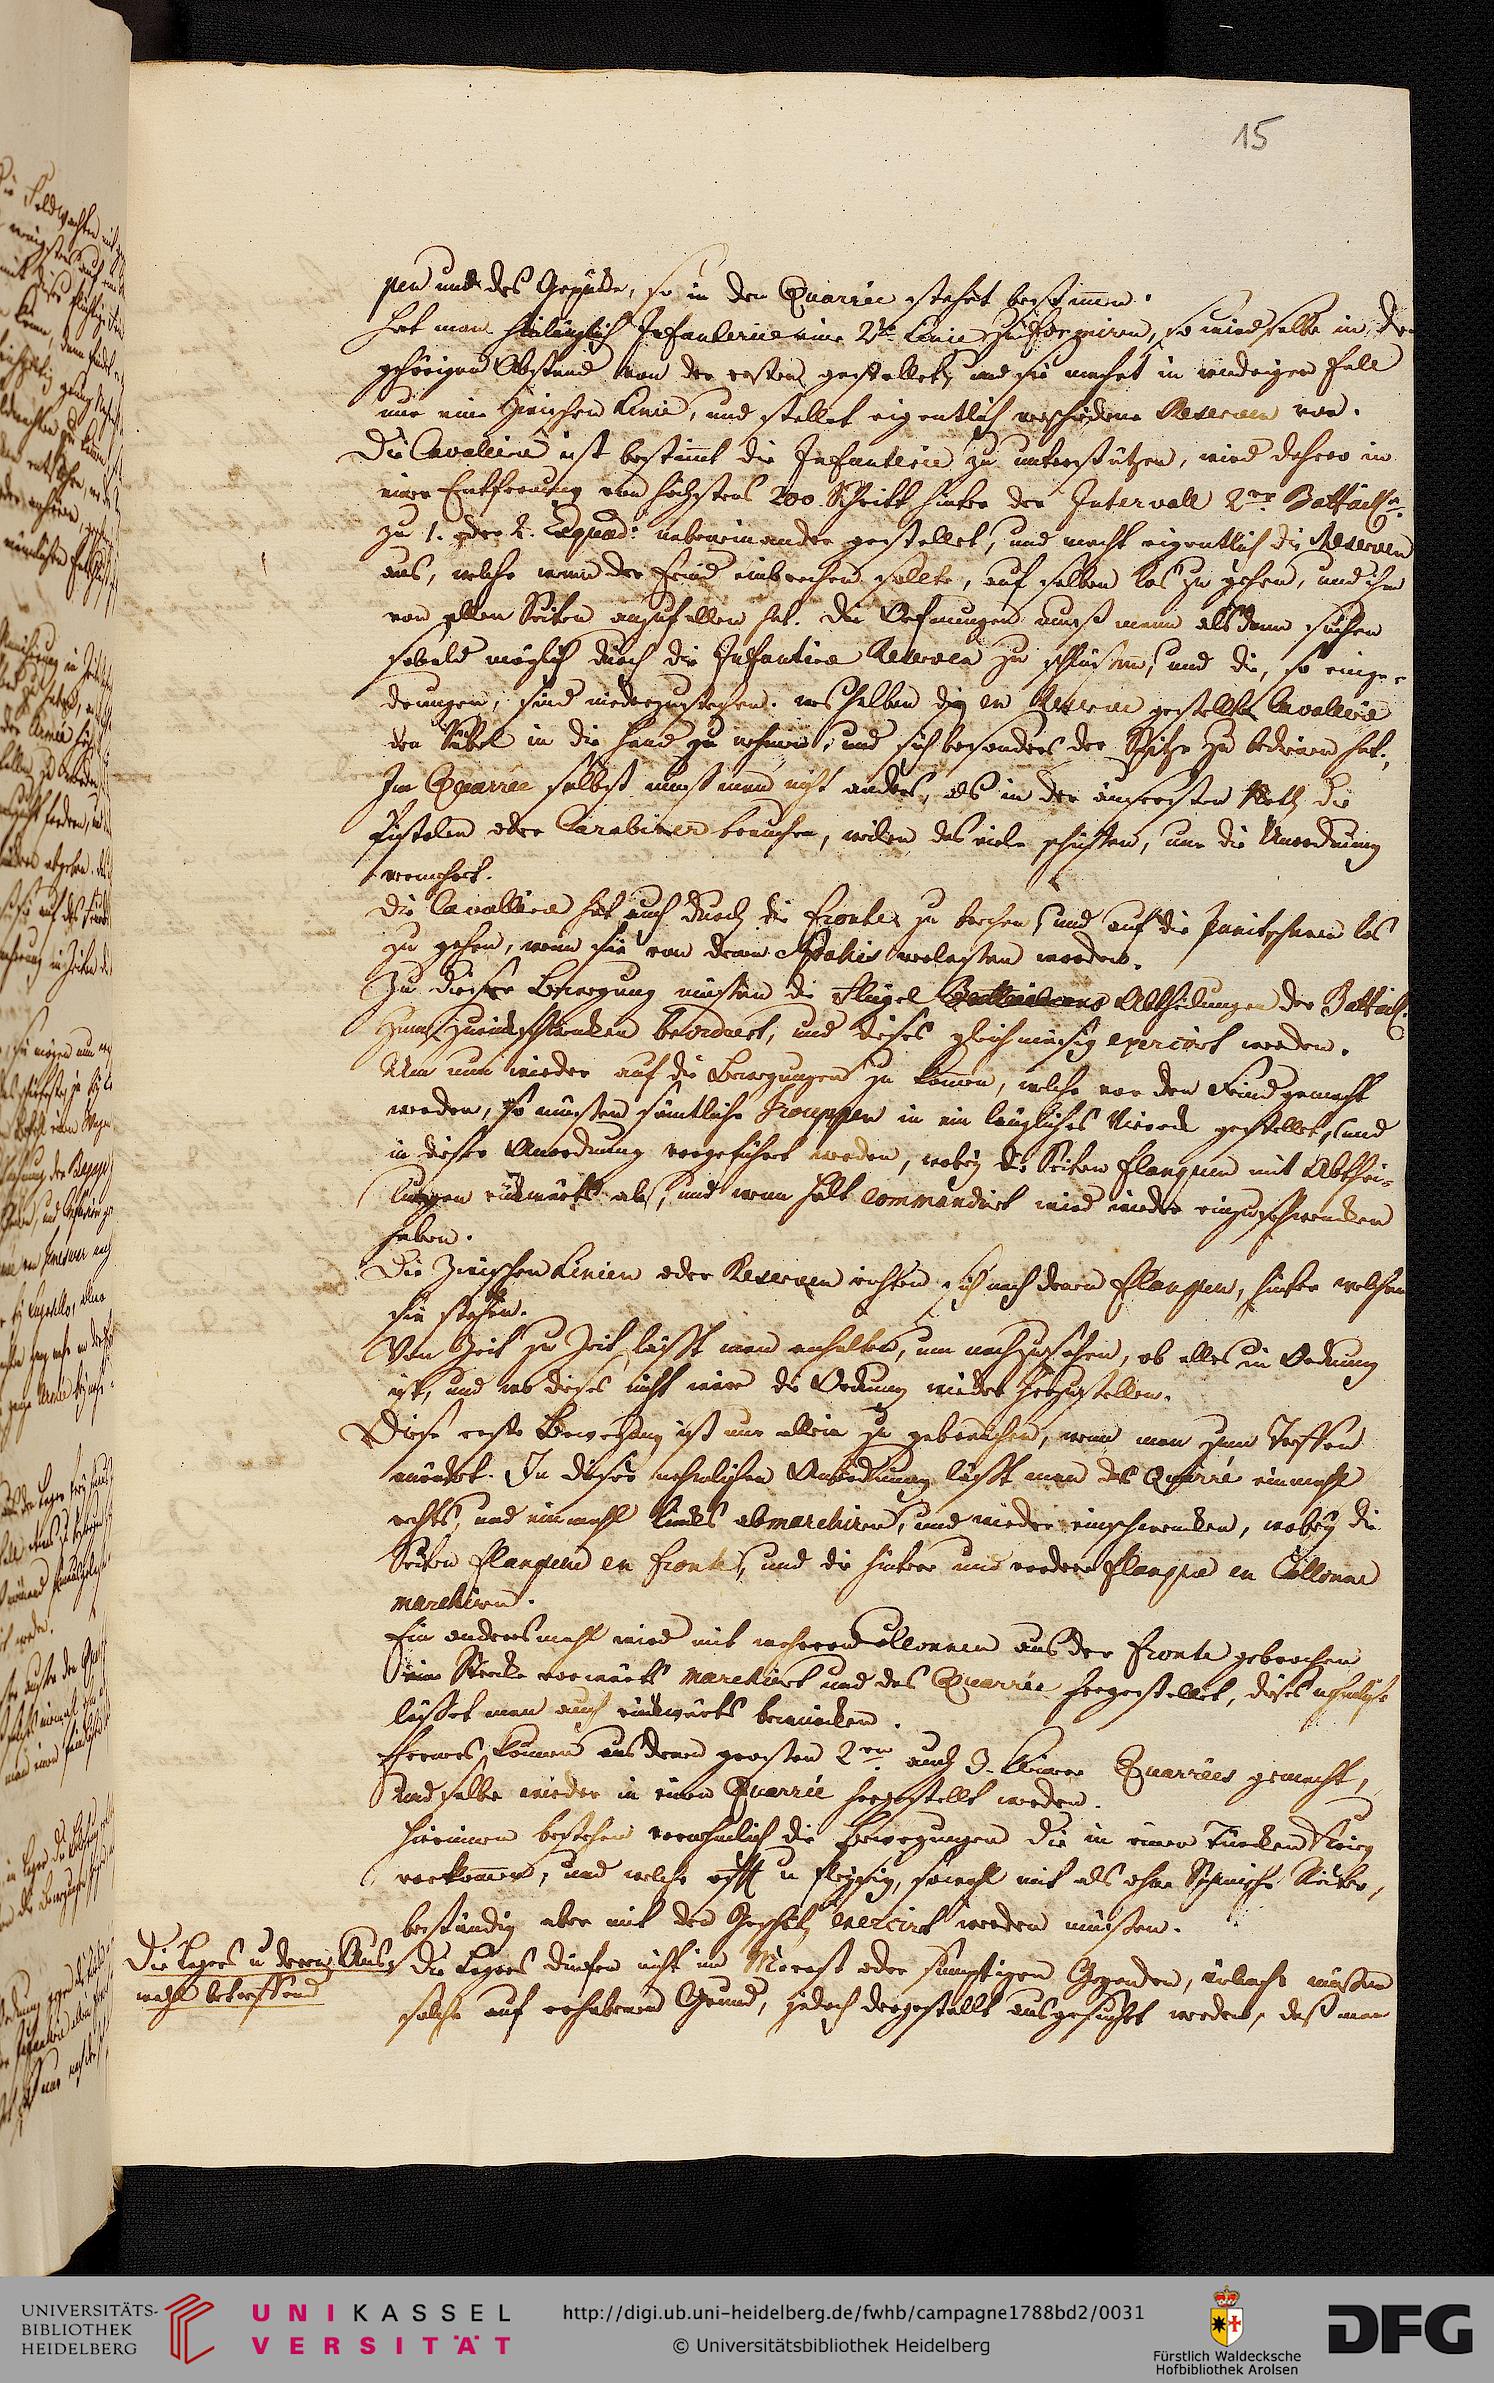 15
pen und des Gepäcke, so in den Quarrée stehet bestimmen.
Hat man hinlänglich Infanterie eine 2te Linie zu formiren, so wird selbe in der
gehörigen Abstand von der ersten gestellet, und sie machet in widrigen Fall
nur eine Zwischen Linie, und stellet eigentlich verschiedene Reserven vor.
Die Cavallerie ist bestimt die Infanterie zu unterstützen, wird dahero in
einer Entfernung von höchstens 200 Schritt hinter der Intervall 2er Battaill:n
zu 1. oder 2. Esquad: nebeneinander gestellet, und macht eigentlich die Reserven
aus, welche wenn der Feind einbrechen sollte, auf selben los zu gehen, und ihn
von allen Seiten anzufallen hat. Die Oefnungen muß mann als dann suchen
sobald möglich durch die Infanterie Reserven zu schlüßen, und die, so einge-
drungen, sind niederzustechen. weshalben die en Reserve gestellte Cavallerie
den Säbel in die Hand zu nehmen, und sich besonders der Spitze zu bedienen hat.
Im Quarrée selbst muß man nicht anders, als in der äusersten Noth die
Pistolen oder Carabiner brauchen, weilen das viele schüssen, nur die Unordnung
vermehrt.
Die Cavallerie hat auch durch die Fronte zu brechen, und auf die Janitscharen los
zu gehen, wenn sie von denen Spahis verlassen werden.
Zu dieser Bewegung müssen die Flügel Abtheilungen der Battaill:
zum zurückschwenken beordnert, und dieses gleichmässig exercirt werden.
Um nun wieder auf die Bewegungen zu kommen, welche vor den Feind gemacht
werden, so müssen sämtliche Trouppen in ein längliches Viereck gestellet, und
in dieser Anordnung vorgeführt werden, wobey die Seiten Flanquen mit Abthei-
lungen rückwärts ab, und wenn halt commandirt wird wieder einzuschwenken
haben.
Die Zwischen Linien oder Reserven richten sich nach denen Flanquen, hinter welchen
sie stehen.
Von Zeit zu Zeit läßt man anhalten, um nachzusehen, ob alles in Ordnung
ist, und wo dieses nicht wäre die Ordnung wieder herzustellen.
Diese erste Bewegung ist nur allein zu gebrauchen, wenn man zum Treffen
anrückt. In dieser nehmlichen Anordnung läßt man das Quarré einmahl
rechts, und einmahl lincks abmarchiren, und wieder einschwencken, wobey die
Seiten Flanquen en Fronte, und die hintere und vordere Flanque en Collonne
marchiren.
Ein andersmahl wird mit mehreren Collonnen aus der Fronte gebrochen
eine Strecke vorwärts marchiert und das Quarrée hergestellet, dieses nehmliche
lässet man auch rückwärts bewürcken.
Ferners können aus denen grosten 2en auch 3. kleinere Quarrées gemacht,
und selbe wieder in einen Quarrée hergestellt werden.
Hierinnen bestehen vornehmlich die Bewegungen die in einen Türcken Krieg
vorkommen, und welche oft u fleyssig, sowohl mit als ohne Spanische Reiter,
beständig aber mit den Geschütz exercirt werden müssen.
Die Lagers u deren Aus-
wahl betreffend
Die Lagers dürfen nicht im Morast oder sumpfigen Gegenden, müssen
solche auf erhabenen Grund, jedoch dergestallt ausgesucht werden, daß man
UNIVERSITÄTS-
BIBLIOTHEK
HEIDELBERG
UNIKASSEL
VERSITÄT
http://digi.ub.uni-heidelberg.de/fwhb/campagne1788bd2/0031
© Universitätsbibliothek Heidelberg
Fürstlich Waldecksche
Hofbibliothek Arolsen
DFG